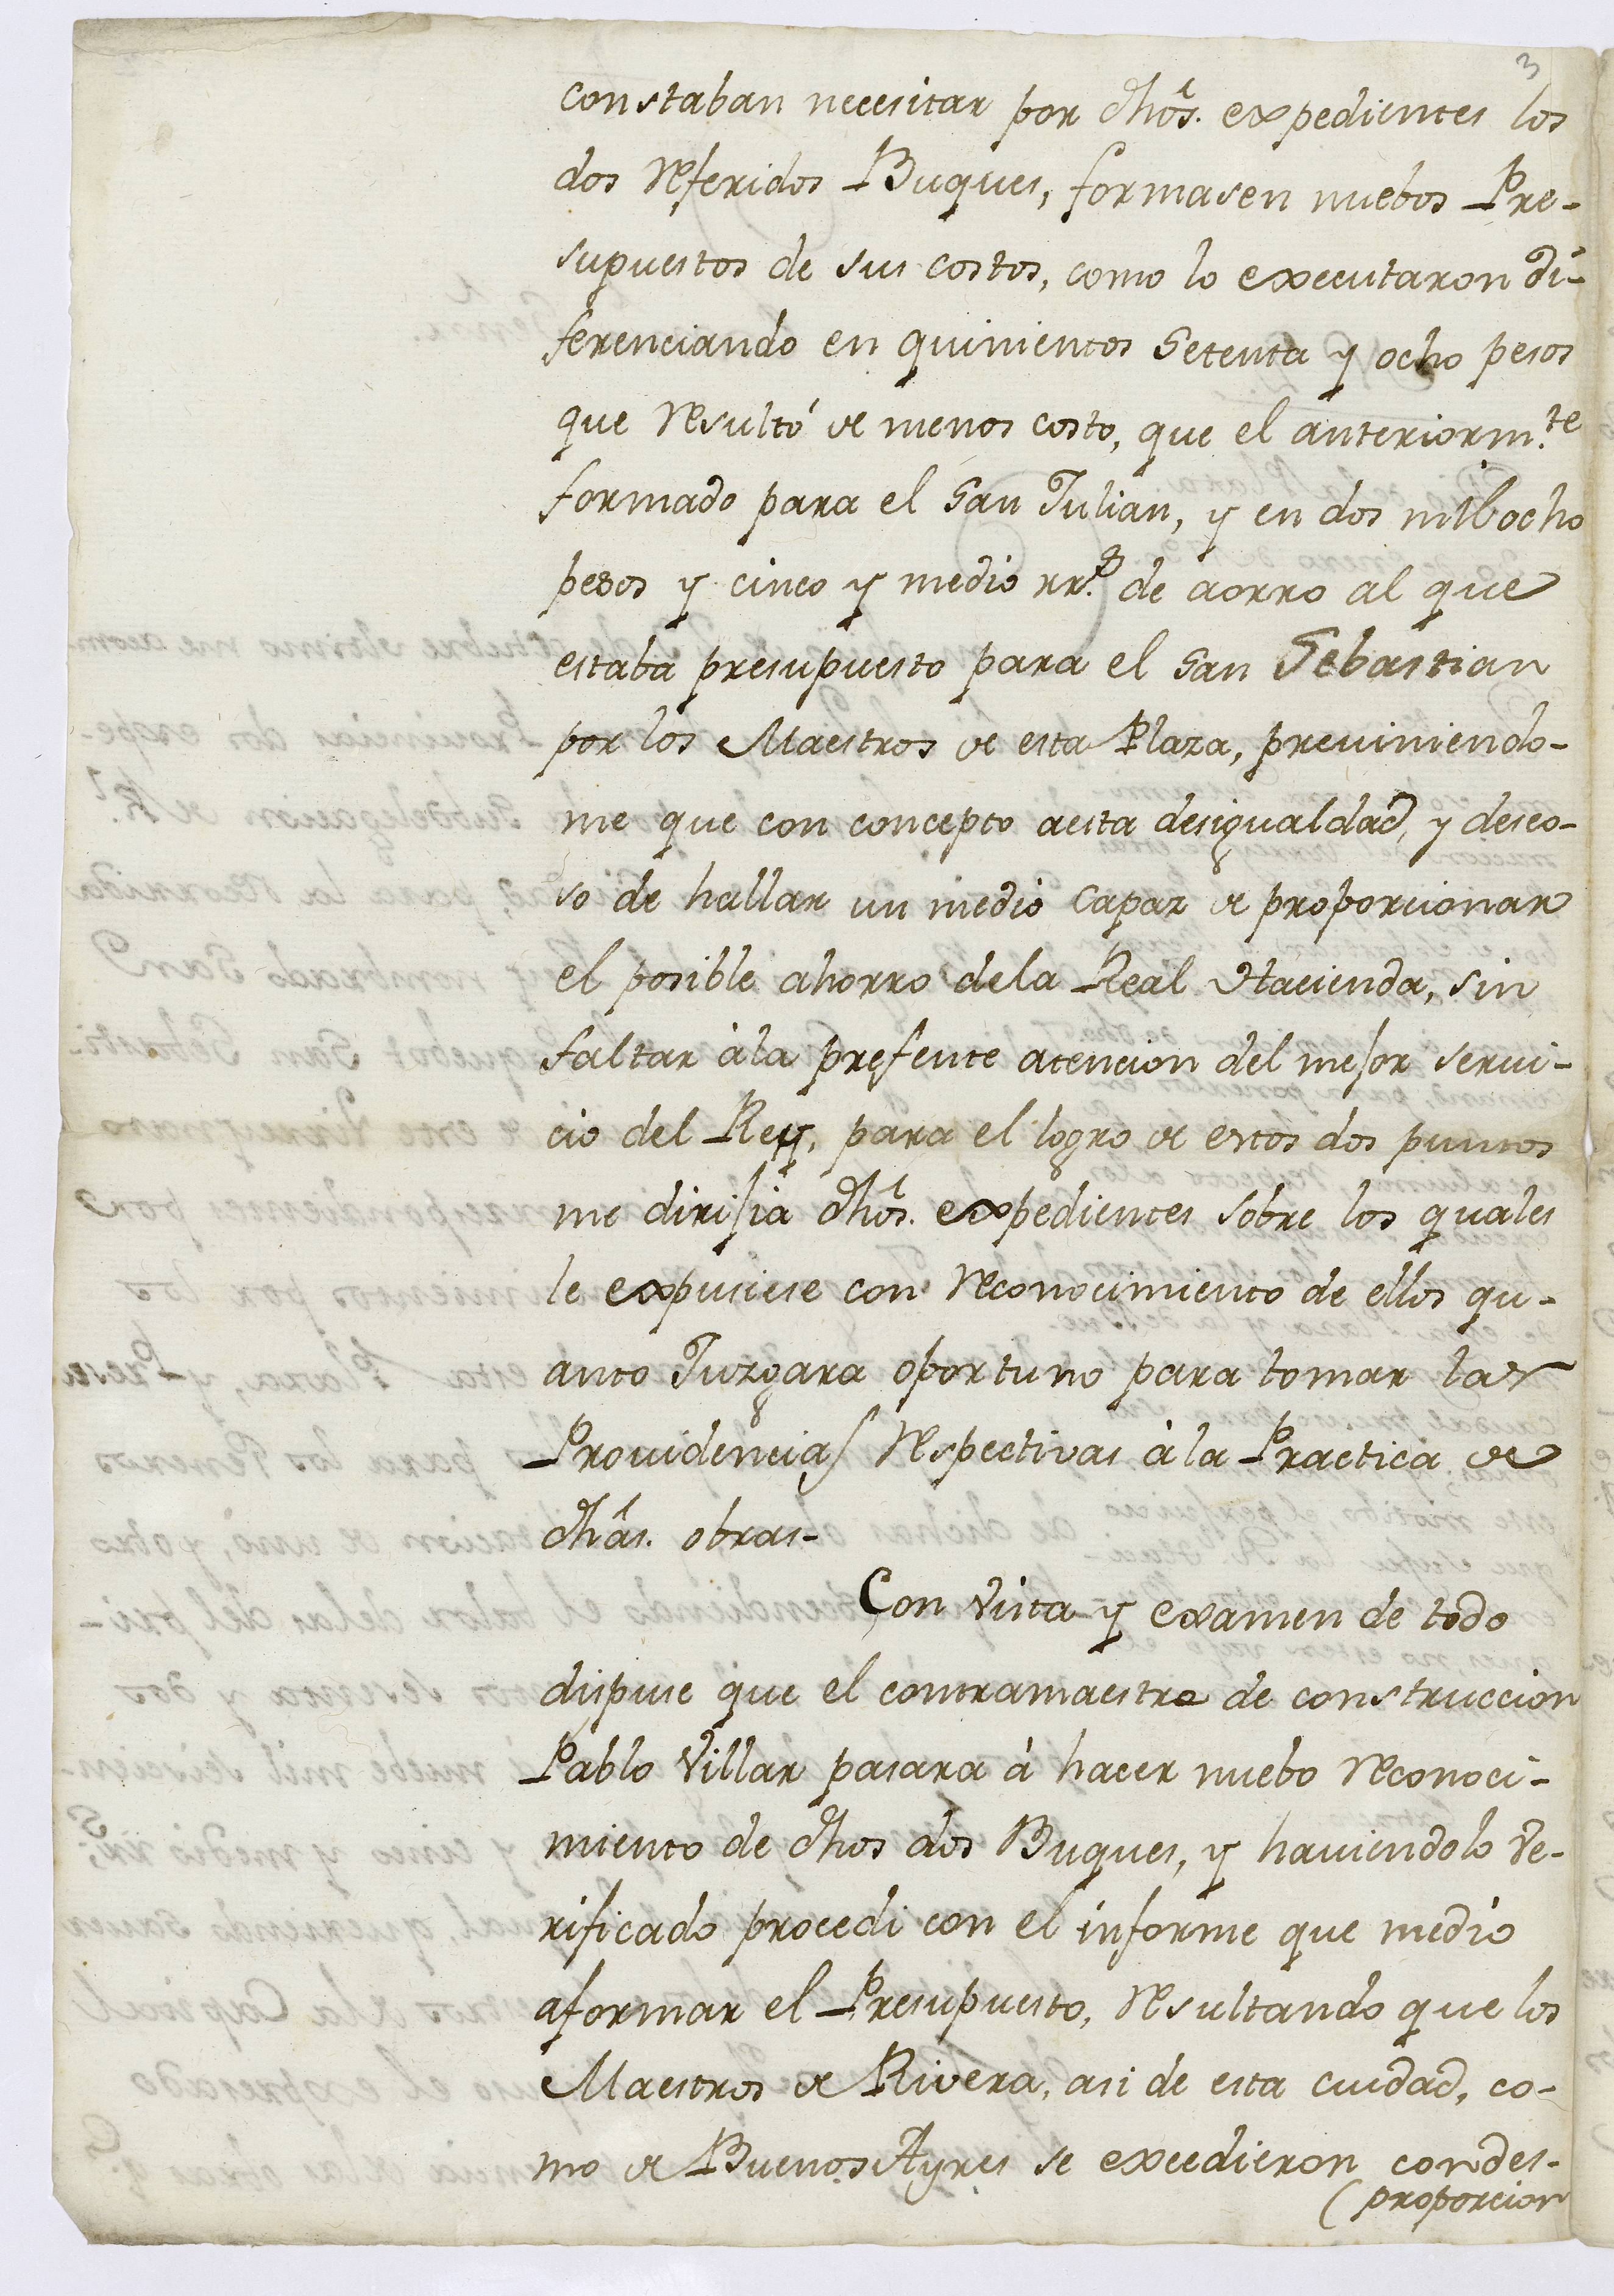 3
constaban necesitar por dhos. expedientes los
dos referidos Buques, formasen nuebos Pre-
supuestos de sus costos, como lo executaron di-
ferenciando en quinientos setenta y ocho pesos
que resultó de menos costo, que el anteriorm.te
formado para el San Julian, y en dos mil ocho
pesos y cinco y medio rr.s de aorro al que
estaba presupuesto para el San Sebastian
por los Maestros de esta Plaza, previniendo-
me que con concepto aesta desigualdad, y deseo-
so de hallar un medio capaz de proporcionar
el posible ahorro dela Real Hacienda, sin
faltar àla presente atencion del mejor servi-
cio del Rey, para el logro de estos dos puntos
me dirijia dhos. expedientes sobre los quales
le expusiese con reconocimiento de ellos qu-
anto Juzgara oportuno para tomar las
Providencias respectivas à la Practica de
dhas. obras-
Con vista y examen de todo
dispuse que el contramaestre de construccion
Pablo Villar pasara à hacer nuebo reconoci-
miento de dhos dos Buques, y haviendolo ve-
rificado procedi con el informe que medio
aformar el Presupuesto, resultando que los
Maestros de Rivera, asi de esta ciudad, co-
mo de Buenos Ayres se excedieron con des-
(proporcion